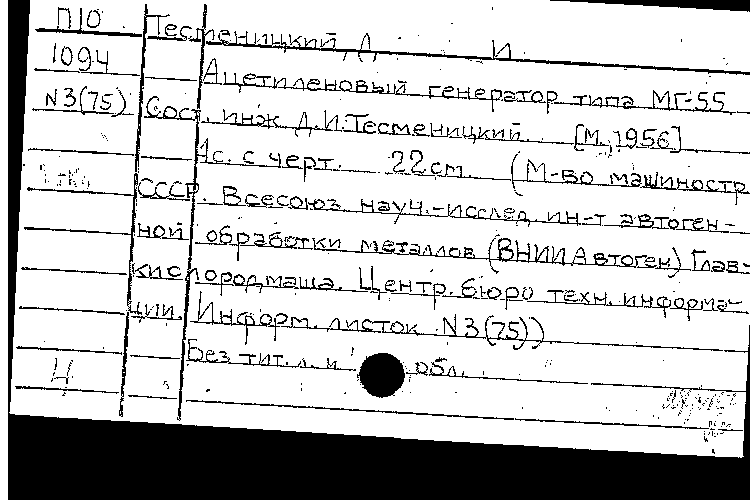 П10 Тесменицкий, Д. И.
1094
Ацетиленовый генератор типа МГ-55
N3(75) Сост. инж Д.И.Тесменицкий. [М., 1956]
4с. с черт. 22см. (М-во машиностр
СССР. Всесоюз науч.-исслед. ин-т автоген-
ной обработки металлов (ВНИИАвтоген) Глав-
кислородмаша. Центр. бюро техн. информа-
ции. Информ. листок N3(75))
Без тит. л. и обл.
4